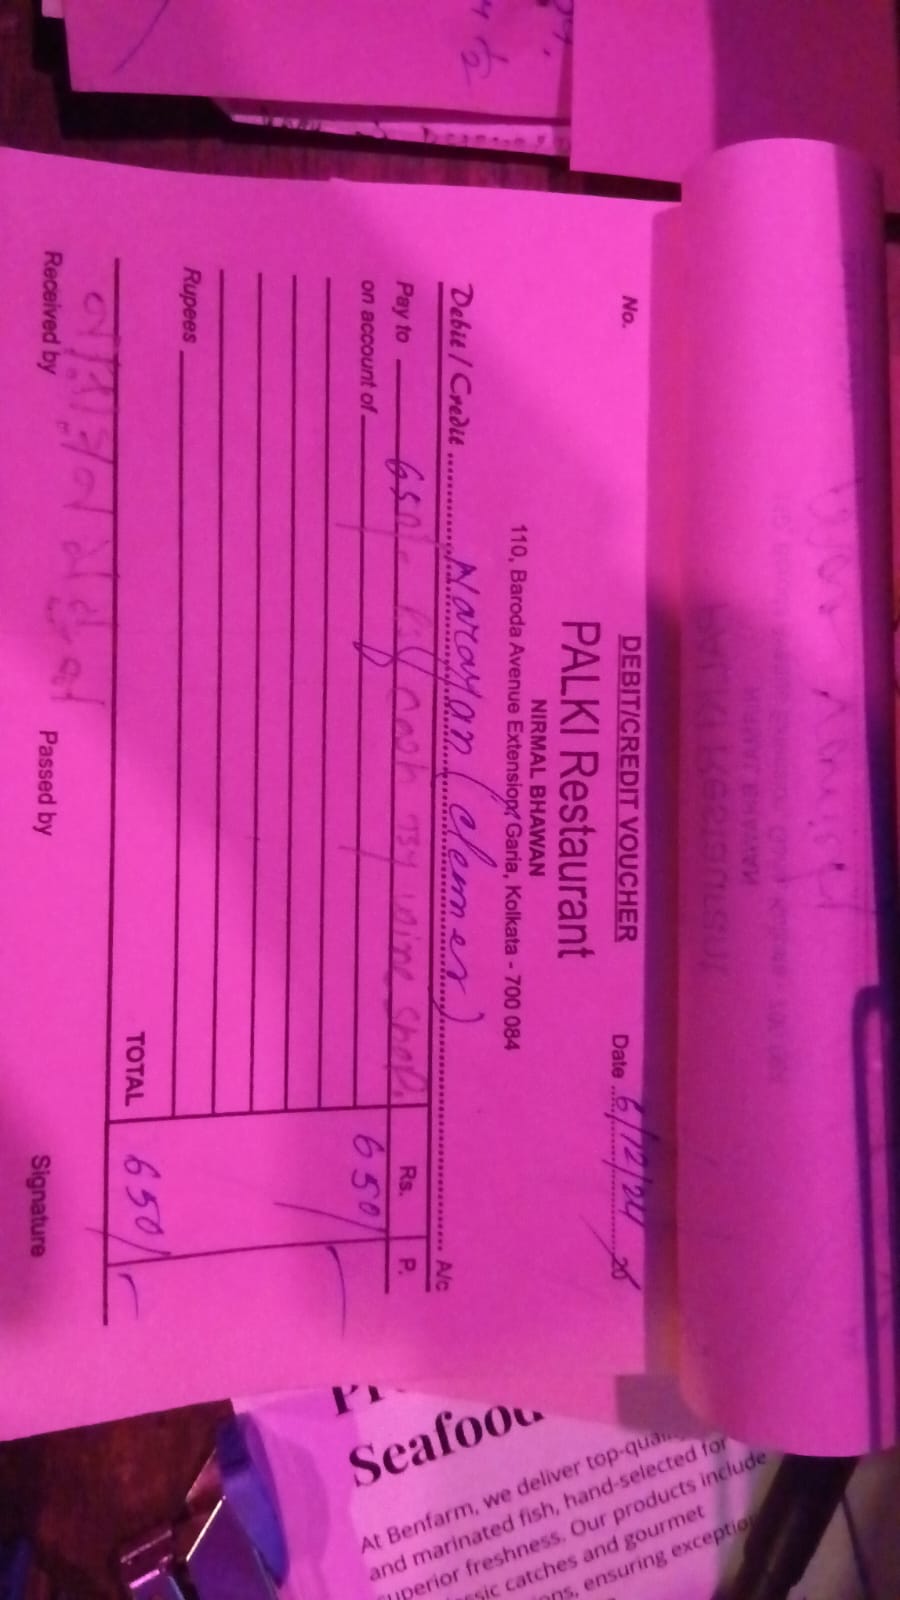 DEBIT/CREDIT VOUCHER
No.
Date 6/12/24 20
PALKI Restaurant
NIRMAL BHAWAN
110, Baroda Avenue Extension, Garia, Kolkata - 700 084
Debit / Credit Narayan (cleaner) A/c
Pay to 650/- cash wine shop. Rs. P.
on account of 650/-
Rupees
TOTAL 650/-
Received by Passed by Signature
Seafood
At Benfarm, we deliver top-
and marinated fish, hand-selected for
superior freshness. Our products include
catches and gourmet
ensuring